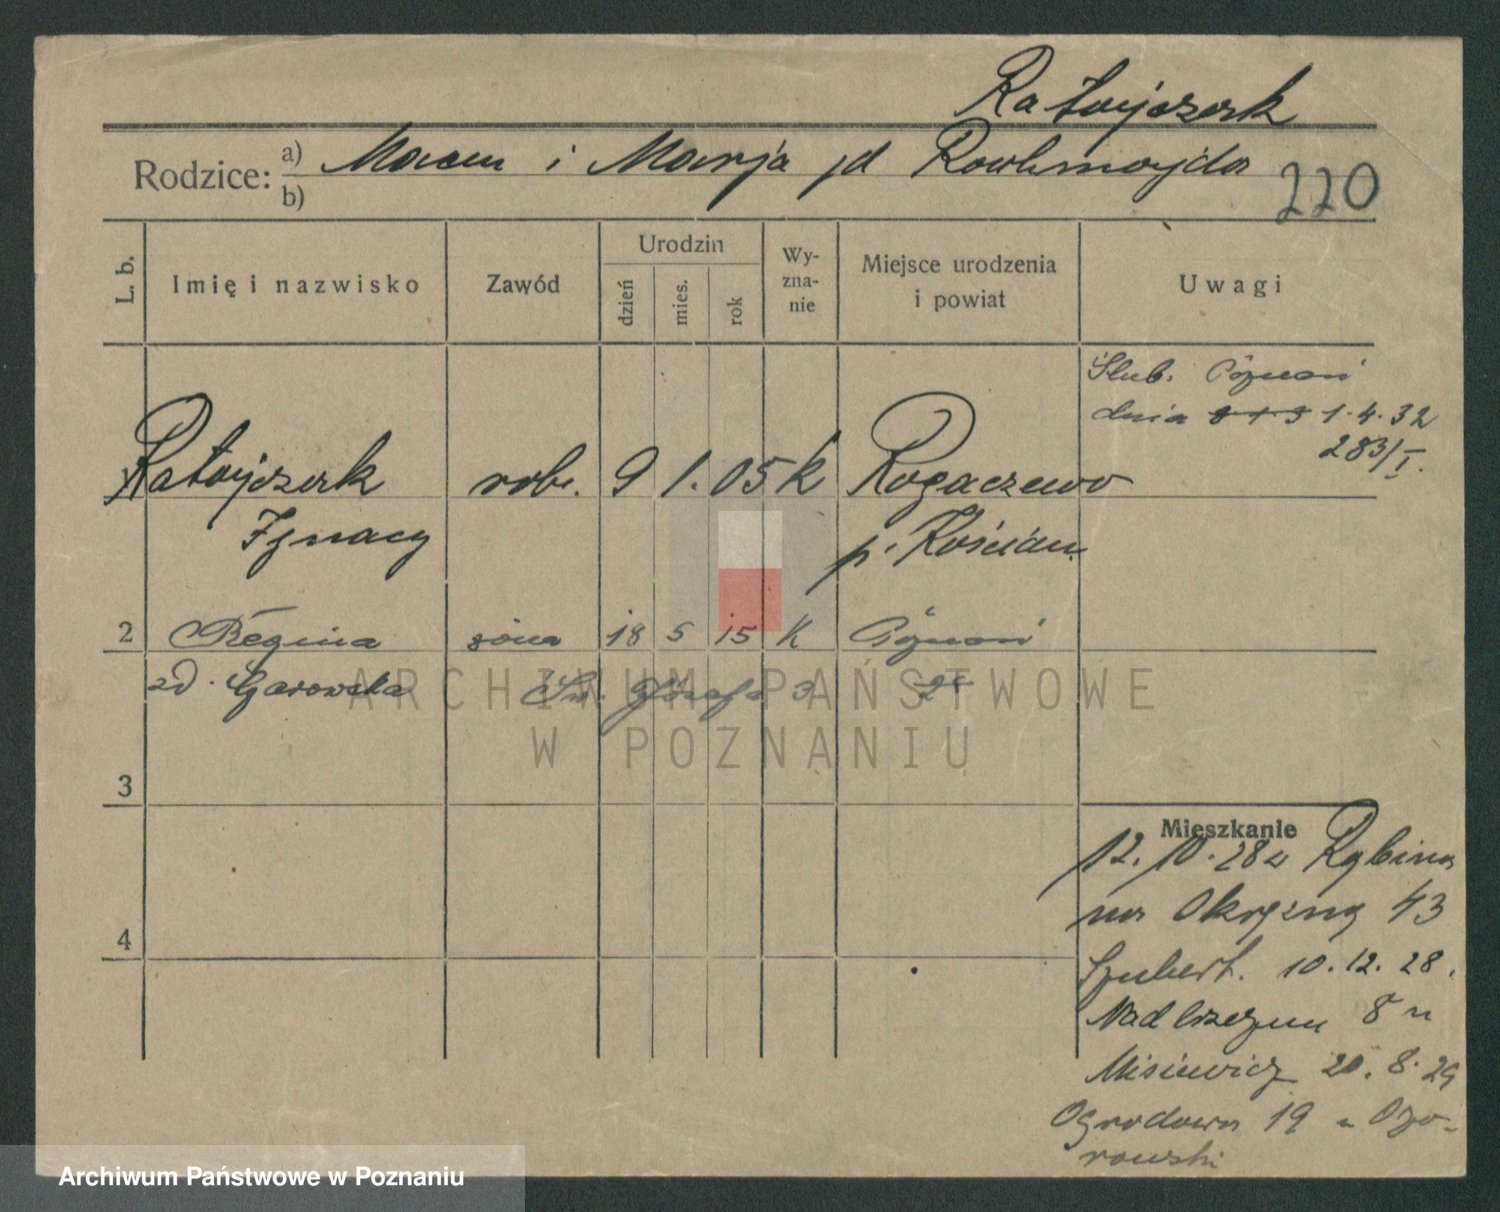 Ratajczak
Rodzice: a) Marcin i Marja zd
b)
220
L. b.
Imię i nazwisko
Zawód
Urodzin
dzień
mies.
rok
Wy-
zna-
nie
Miejsce urodzenia
i powiat
Uwagi
Ślub. Poznań
dnia 1.4.32
283/I.
Ratajczak rob. 9 1. 05 k Rogaczewo
Ignacy p. Kościan.
2 Regina żona 18 5 15 K Poznań
zd. Garowska Św. Józefa 3
3
Mieszkanie
12.10.28 u Rybina
na Okrężną 43
4
Szubert. 10.12.28.
Nadbrzeżna 8 u
Misiewicz 20.8.29
Ogrodowa 19 u Ozo-
rowski
ARCHIWUM PAŃSTWOWE
W POZNANIU
Archiwum Państwowe w Poznaniu